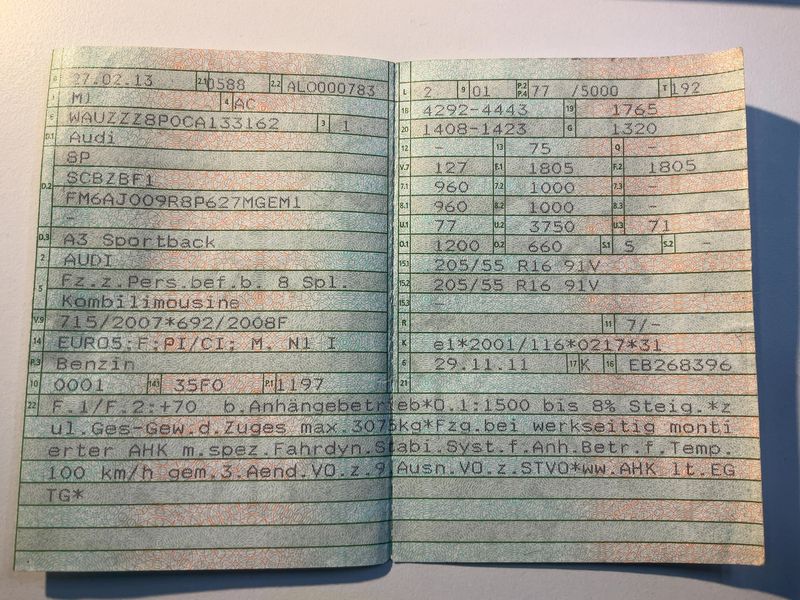 B 27.02.13 2.1 0588 2.2 ALO000783
J M1 4 AC
E WAUZZZ8P0CA133162 3 1
D.1 Audi
8P
D.2 SCBZBF1
FM6AJ009R8P627MGEM1
-
D.3 A3 Sportback
2 AUDI
5 Fz.z.Pers.bef.b. 8 Spl.
Kombilimousine
V.9 715/2007*692/2008F
14 EURO5;F;PI/CI; M, N1 I
P.3 Benzin
10 0001 14.1 35F0 P.1 1197
L 2 9 01 P.2 P.4 77 /5000 T 192
18 4292-4443 19 1765
20 1408-1423 G 1320
12 - 13 75 Q -
V.7 127 F.1 1805 F.2 1805
7.1 960 7.2 1000 7.3 -
8.1 960 8.2 1000 8.3 -
U.1 77 U.2 3750 U.3 71
O.1 1200 O.2 660 S.1 5 S.2 -
15.1 205/55 R16 91V
15.2 205/55 R16 91V
15.3 -
R 11 7/-
K e1*2001/116*0217*31
6 29.11.11 17 K 16 EB268396
21
22 F.1/F.2:+70 b.Anhängebetrieb*O.1:1500 bis 8% Steig.*z
ul.Ges-Gew.d.Zuges max.3075kg*Fzg.bei werkseitig monti
erter AHK m.spez.Fahrdyn.Stabi.Syst.f.Anh.Betr.f.Temp.
100 km/h gem.3.Aend.VO.z.9.Ausn.VO.z.STVO*ww.AHK lt.EG
TG*